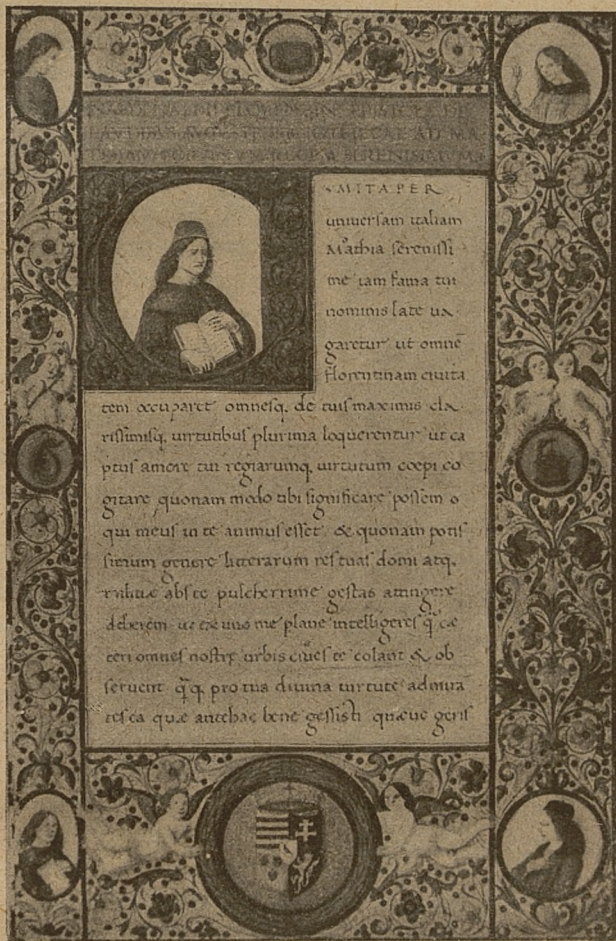 NALDI NALDII FLORENTINI DE
LAVDIBVS AVGVSTAE BIBLIOTHECAE AD MA
SERENISSIMVM
MITA PER
universam italiam
Mathia serenissi-
me iam fama tui
nominis late va
garetur ut omnē
florentinam civita
tem occuparet omnesq. de tuis maximis cla-
rissimisq. virtutibus plurima loquerentur ut ca
ptus amore tui regiarumq. virtutum coepi co
gitare quonam modo tibi significare possem
qui meus in te animus esset & quonam potis
simum genere litterarum res tuas domi atq.
abs te pulcherrime gestas attingere
deberem me plane intelligeres q̄ cæ
teri omnes nostrę urbis cives te colant & ob
servent pro tua divina virtute admira
tes ea quæ antehac bene gessisti quæve geris